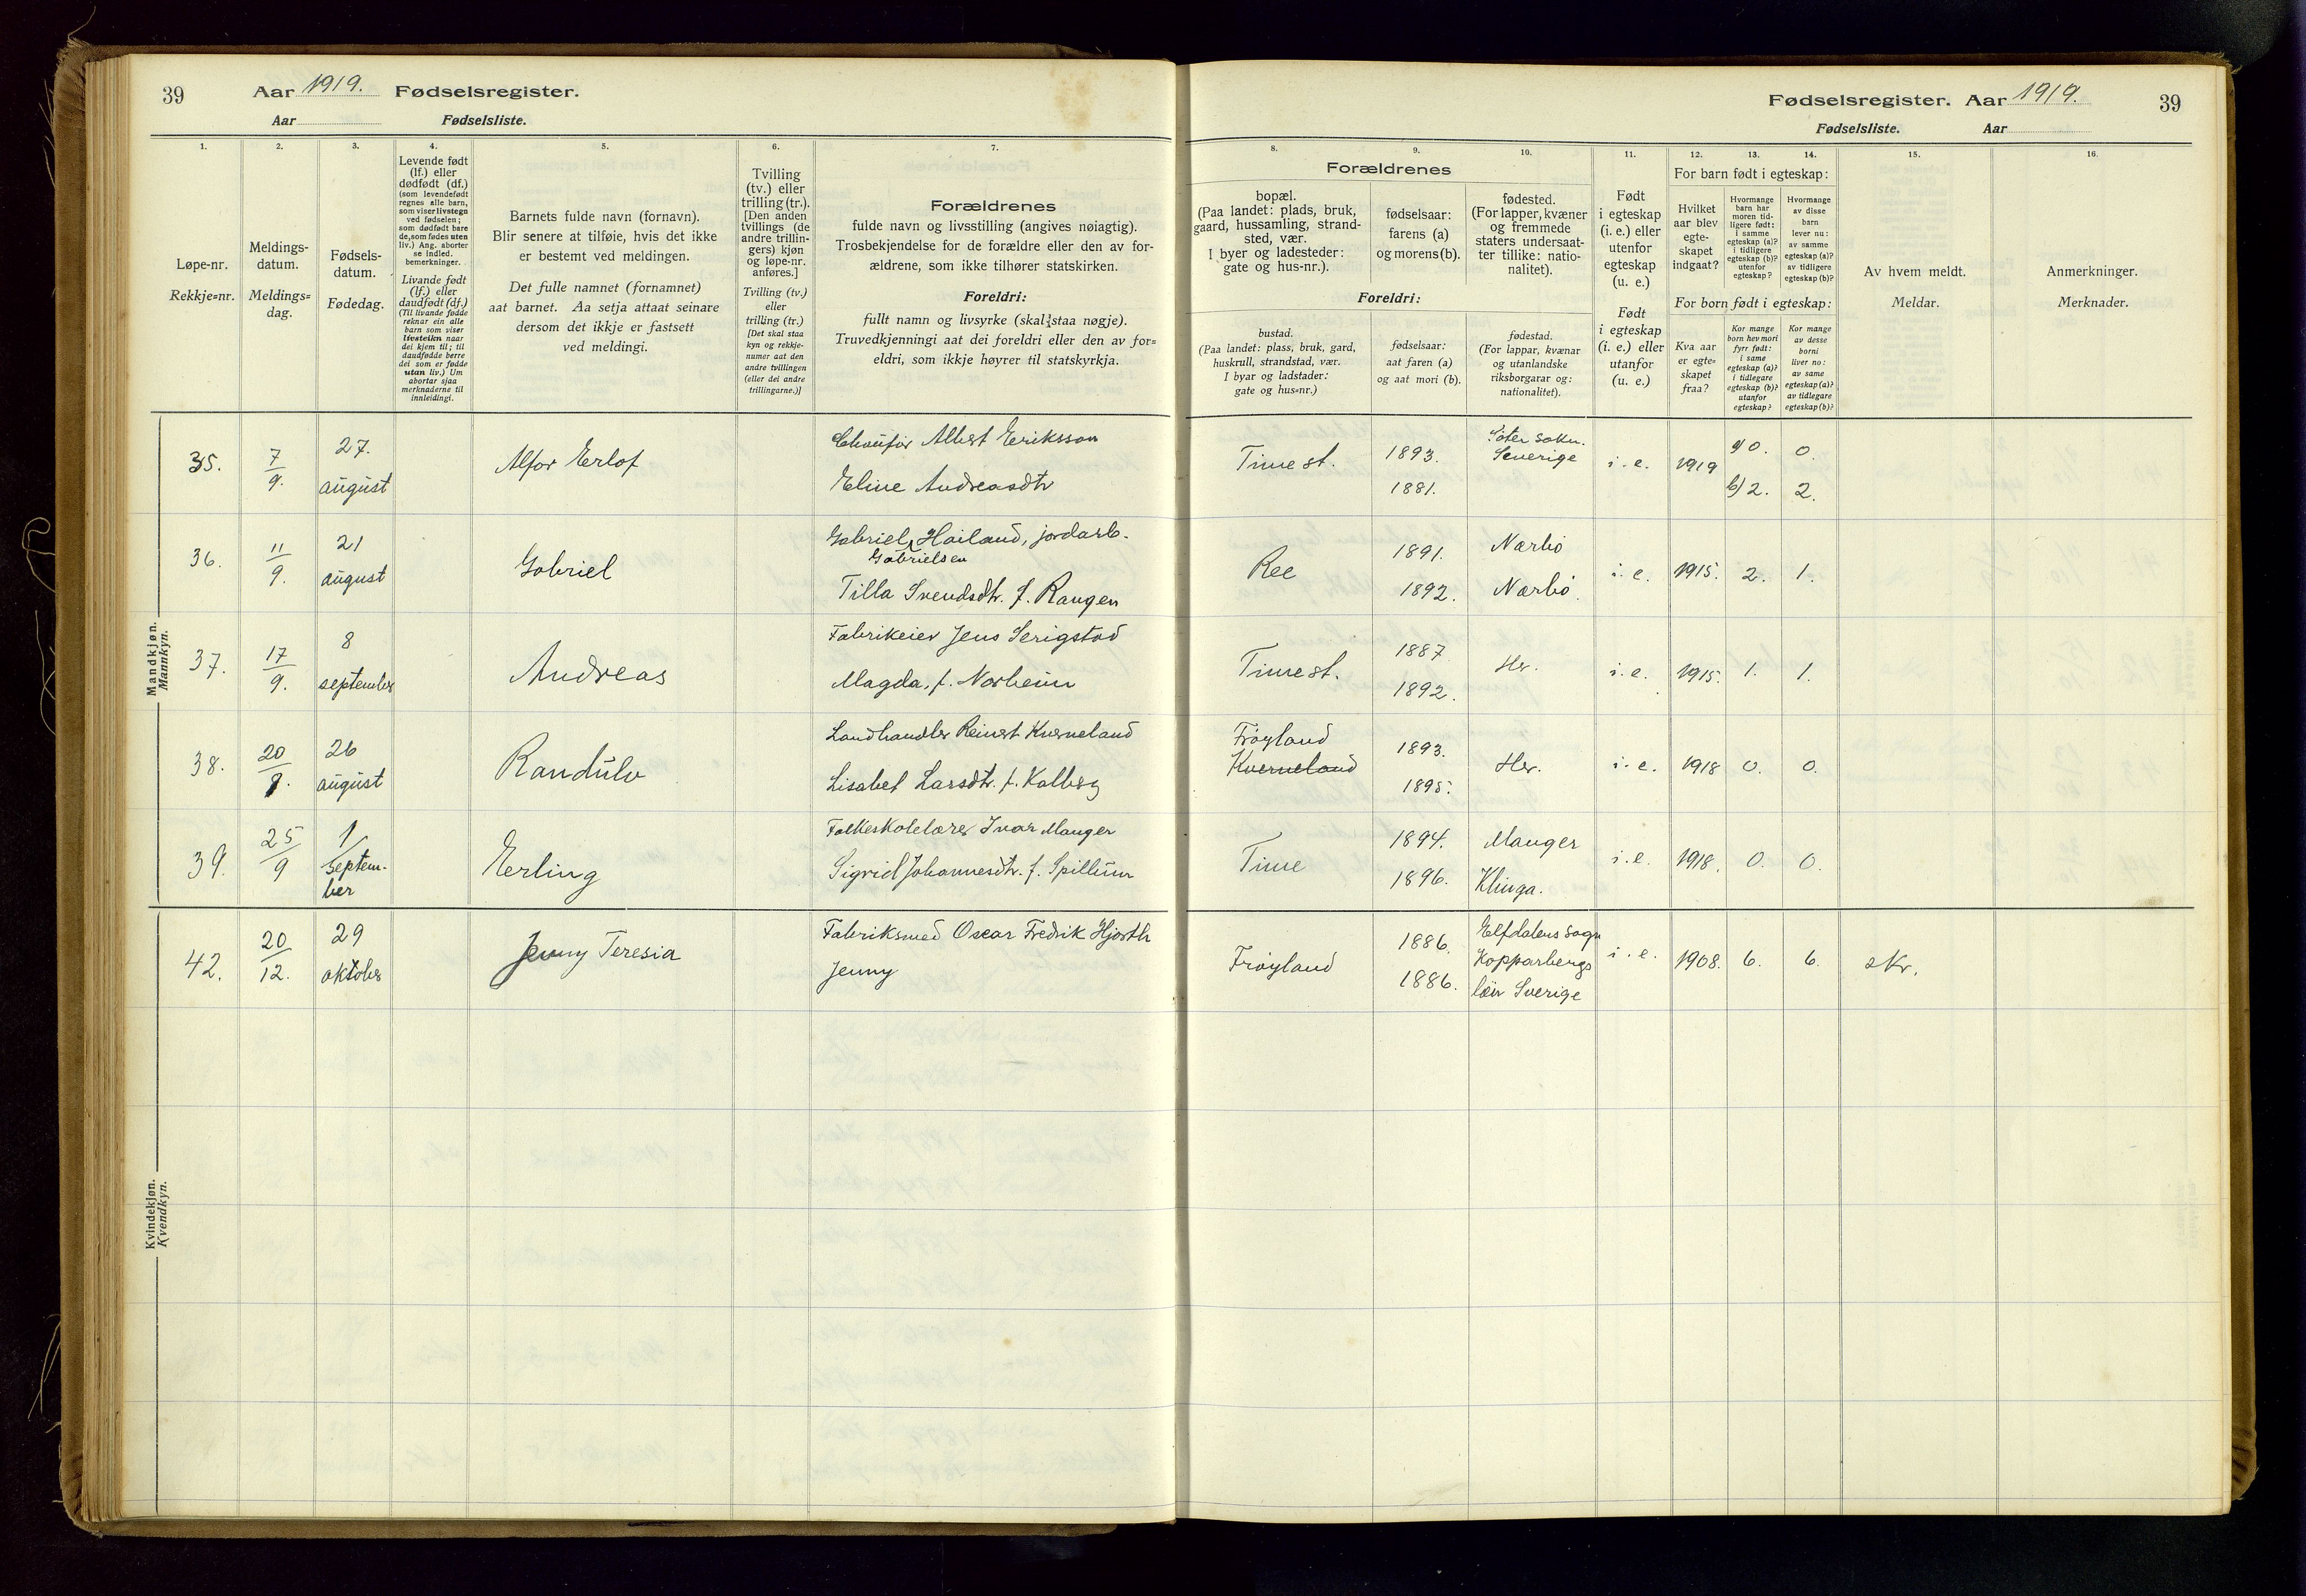 39 Aar 1919. Fødselsregister.
Aar Fødselsliste.
Fødselsregister. Aar 1919. 39
Fødselsliste. Aar
1. 2. 3. 4. 5. 6. 7.
Løpe-nr.
Rekkje=nr.
Meldings-
datum.
Meldings=
dag.
Fødsels-
datum.
Fødedag.
Levende født
(lf.) eller
dødfødt (df.)
(som levendefødt
regnes alle barn,
som viser livstegn
ved fødselen;
som dødfødt bare
de, som fødes uten
liv.) Ang. aborter
se indled.
bemerkninger.
Livande født
(lf.) eller
daudfødt (df.)
(Til livande fødde
reknar ein alle
barn som viser
livsteikn naar
dei kjem til; til
daudfødde berre
dei som er fødde
utan liv.) Um
abortar sjaa
merknaderne til
innleidingi.
Barnets fulde navn (fornavn).
Blir senere at tilføie, hvis det ikke
er bestemt ved meldingen.
Det fulle namnet (fornamnet)
aat barnet. Aa setja attaat seinare
dersom det ikkje er fastsett
ved meldingi.
Tvilling
(tv.) eller
trilling (tr.).
[Den anden
tvillings (de
andre trillin-
gers) kjøn
og løpe-nr.
anføres.]
Tvilling (tv.)
eller
trilling (tr.)
[Det skal staa
kyn og rekkje-
numer aat den
andre tvillingen
(eller dei andre
trillingarne.)]
Forældrenes
fulde navn og livsstilling (angives nøiagtig).
Trosbekjendelse for de forældre eller den av for-
ældrene, som ikke tilhører statskirken.
Foreldri:
fullt namn og livsyrke (skal staa nøgje).
Truvedkjenningi aat dei foreldri eller den av for=
eldri, som ikkje høyrer til statskyrkja.
8. 9. 10. 11. 12. 13. 14. 15. 16.
Forældrenes
bopæl.
(Paa landet: plads, bruk,
gaard, hussamling, strand-
sted, vær.
I byer og ladesteder:
gate og hus-nr.).
fødselsaar:
farens (a)
og morens (b).
fødested.
(For lapper, kvæner
og fremmede
staters undersaat-
ter tillike: natio-
nalitet).
Foreldri:
bustad.
(Paa landet: plass, bruk, gard,
huskrull, strandstad, vær.
I byar og ladstader:
gate og hus=nr.)
fødselsaar:
aat faren (a)
og aat mori (b).
fødestad.
(For lappar, kvænar
og utanlandske
riksborgarar og:
nationalitet).
Født
i egteskap
(i. e.) eller
utenfor
egteskap
(u. e.)
Født
i egteskap
(i. e.) eller
utanfor
(u. e.)
For barn født i egteskap:
Hvilket
aar blev
egte-
skapet
indgaat?
Hvormange
barn har
moren tid-
ligere født:
i samme
egteskap (a)?
i tidligere
egteskap (b)?
utenfor
egteskap?
Hvormange
av disse
barn
lever nu:
av samme
egteskap (a)?
av tidligere
egteskap (b)?
For born født i egteskap:
Kva aar
er egte=
skapet
fraa?
Kor mange
born hev mori
fyrr født:
i same
egteskap (a)?
i tidlegare
egteskap (b)?
utanfor
egteskap?
Kor mange
av desse
borni
liver no:
av same
egteskap (a)?
av tidlegare
egteskap (b)?
Av hvem meldt.
Meldar.
Anmerkninger.
Merknader.
Mandkjøn.
Mannkyn.
35. 7/9. 27. august Alfor Erlof
Chaufør Albert Eriksson
Eline Andreasdtr
Time st. 1893. 1881. Säter sokn. Sverige i. e. 1919 a) 0. 0.
b) 2. 2.
36. 11/9. 21 august Gabriel
Gabriel Gabrielsen Hailand, jordarb.
Tilla Svendsdtr. f. Raugen
Ree 1891. 1892. Nærbø Nærbø. i. e. 1915. 2. 1.
37. 17/9. 8 september Andreas
Fabrikeier Jens Serigstad
Magda, f. Norheim
Time st. 1887 1892. Her. i. e. 1915. 1. 1.
38. 20/9. 26 august Randulv
Landhandler Reinert Kverneland
Lisabet Larsdtr. f. Kalberg
Frøyland
Kverneland 1893. 1895. Her. i. e. 1918 0. 0.
39. 25/9 1/ septem-
ber Erling
Folkeskolelærer Ivar Manger
Sigrid Johannesdtr. f. Spillum
Time 1894. 1896. Manger Klinga. i. e. 1918. 0. 0.
Kvindekjøn.
Kvendkyn.
42. 20/12. 29 oktober Jenny Teresia
Fabriksmed Oscar Fredrik Hjorth
Jenny
Frøyland 1886. 1886. Elfdalens sogn
Kopparbergs
län Sverige i. e. 1908. 6. 6. skr.